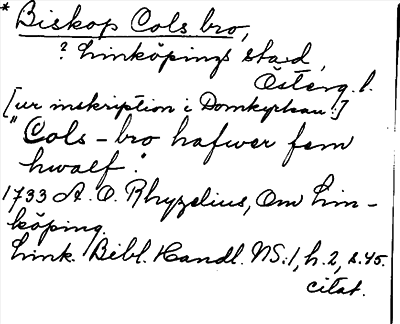 * Biskop Cols bro,
? Linköpings stad,
Österg. l.
[ur inskription i Domkyrkan!]
"Cols-bro hafwer fem
hwalf."
1733 A. O. Rhyzelius, Om Lin-
köping.
Link. Bibl. Handl. NS:1, h.2, s.45.
citat.